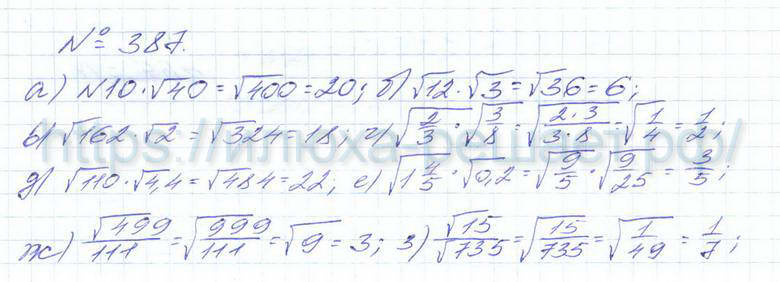 № 387.
а) √10·√40=√400=20; б) √12·√3=√36=6;
в) √162·√2=√324=18, г) √(2/3)·√(3/8)=√((2·3)/(3·8))=√(1/4)=1/2;
д) √110·√4,4=√484=22; е) √(1 4/5)·√0,2=√(9/5)·√(9/25)=3/5;
ж) √499/111=√(999/111)=√9=3; з) √15/√735=√(15/735)=√(1/49)=1/7;
https://илюха-решает.рф/